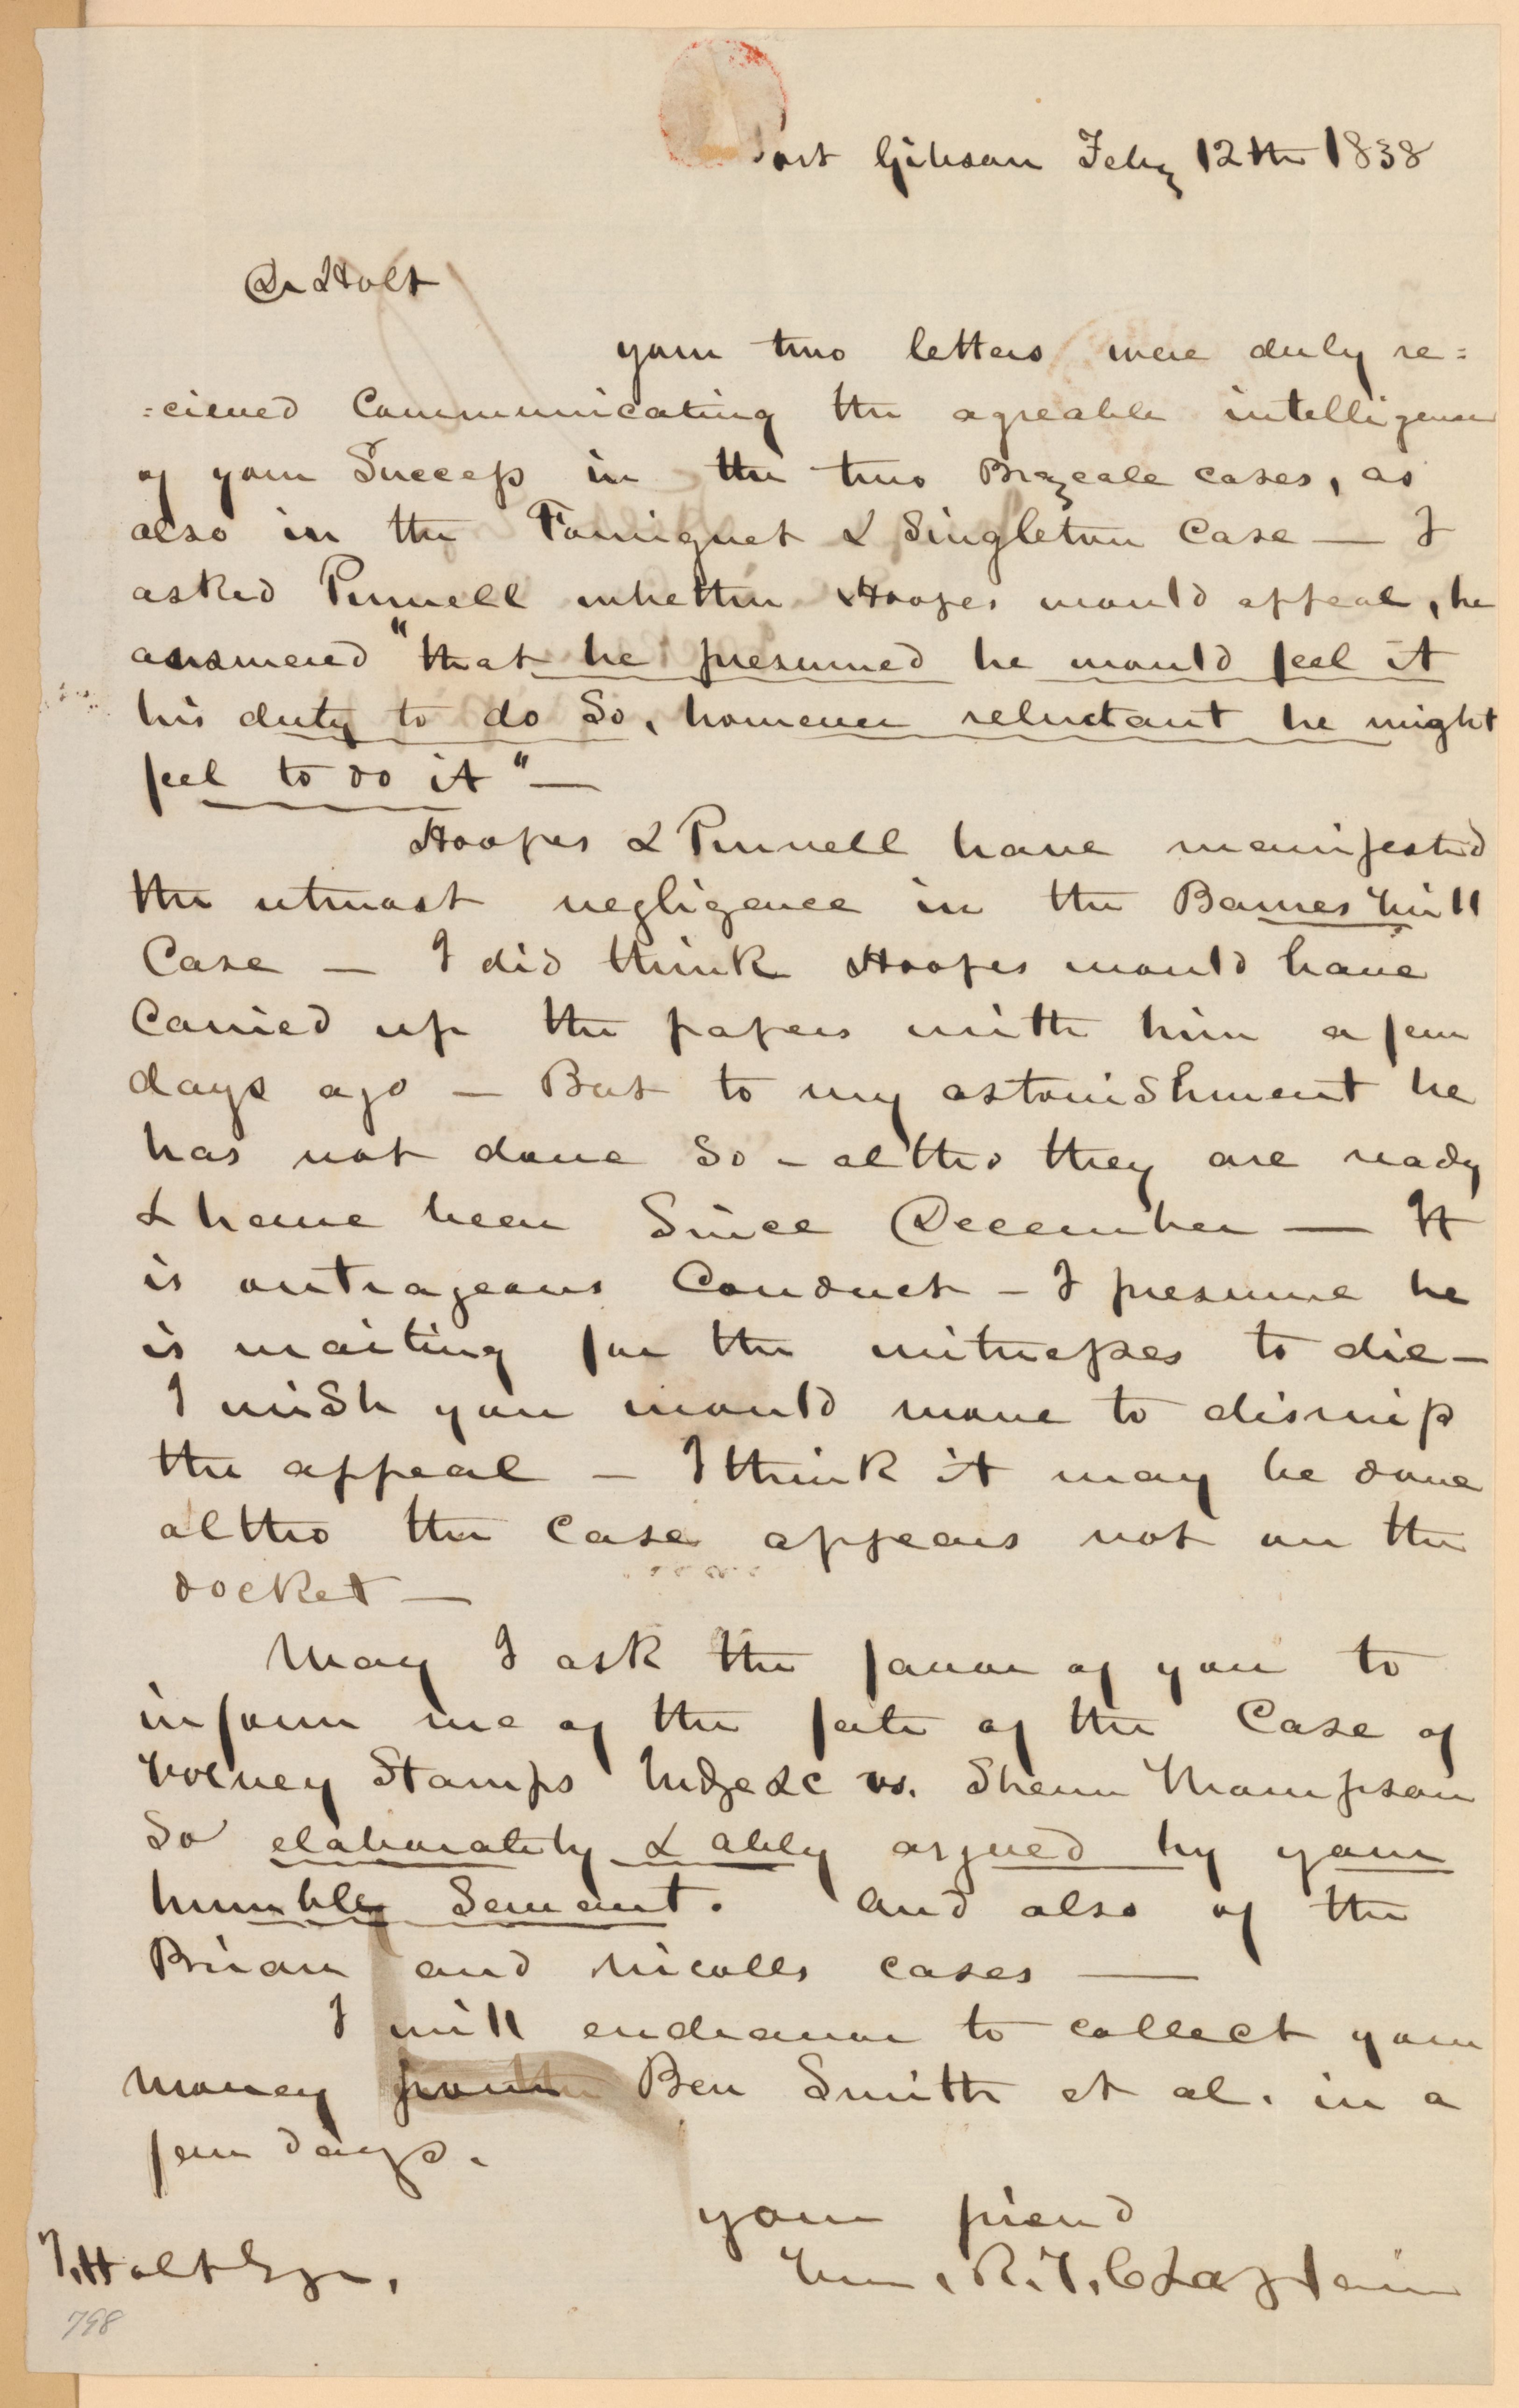 Port Gibson Feby 12th 1838
Dr Holt
your two letters were duly re=
=cieved Communicating the agreable intelligence
of your Success in the two Brazeale cases, as
also in the Fourniquet & Singleton Case — I
asked Pinnell whether Hoopes would appeal, he
answered "that he presumed he would feel it
his duty to do So, however reluctant he might
feel to do it" —
Hoopes & Pinnell have manifested
the utmost negligence in the Barnes Will
Case — I did think Hoopes would have
Carried up the papers with him a few
days ago — But to my astoniShment he
has not done So - altho they are ready
& have been Since December — It
is outrageous Conduct - I presume he
is waiting for the witnesses to die —
I wiSh you would move to dismiss
the appeal — I think it may be done
altho the Case appears not on the
docket —
May I ask the favor of you to
inform me of the fate of the Case of
Volney Stamps &c vs. Thompson
So elaborately & ably argued by your
humble Servant. And also of the
Brian and Nicolls cases —
I will endeavor to collect your
money from Ben Smith et al. in a
few days.
your friend
J. Holt Esqr.
Wm. R. T. Chaplain
798